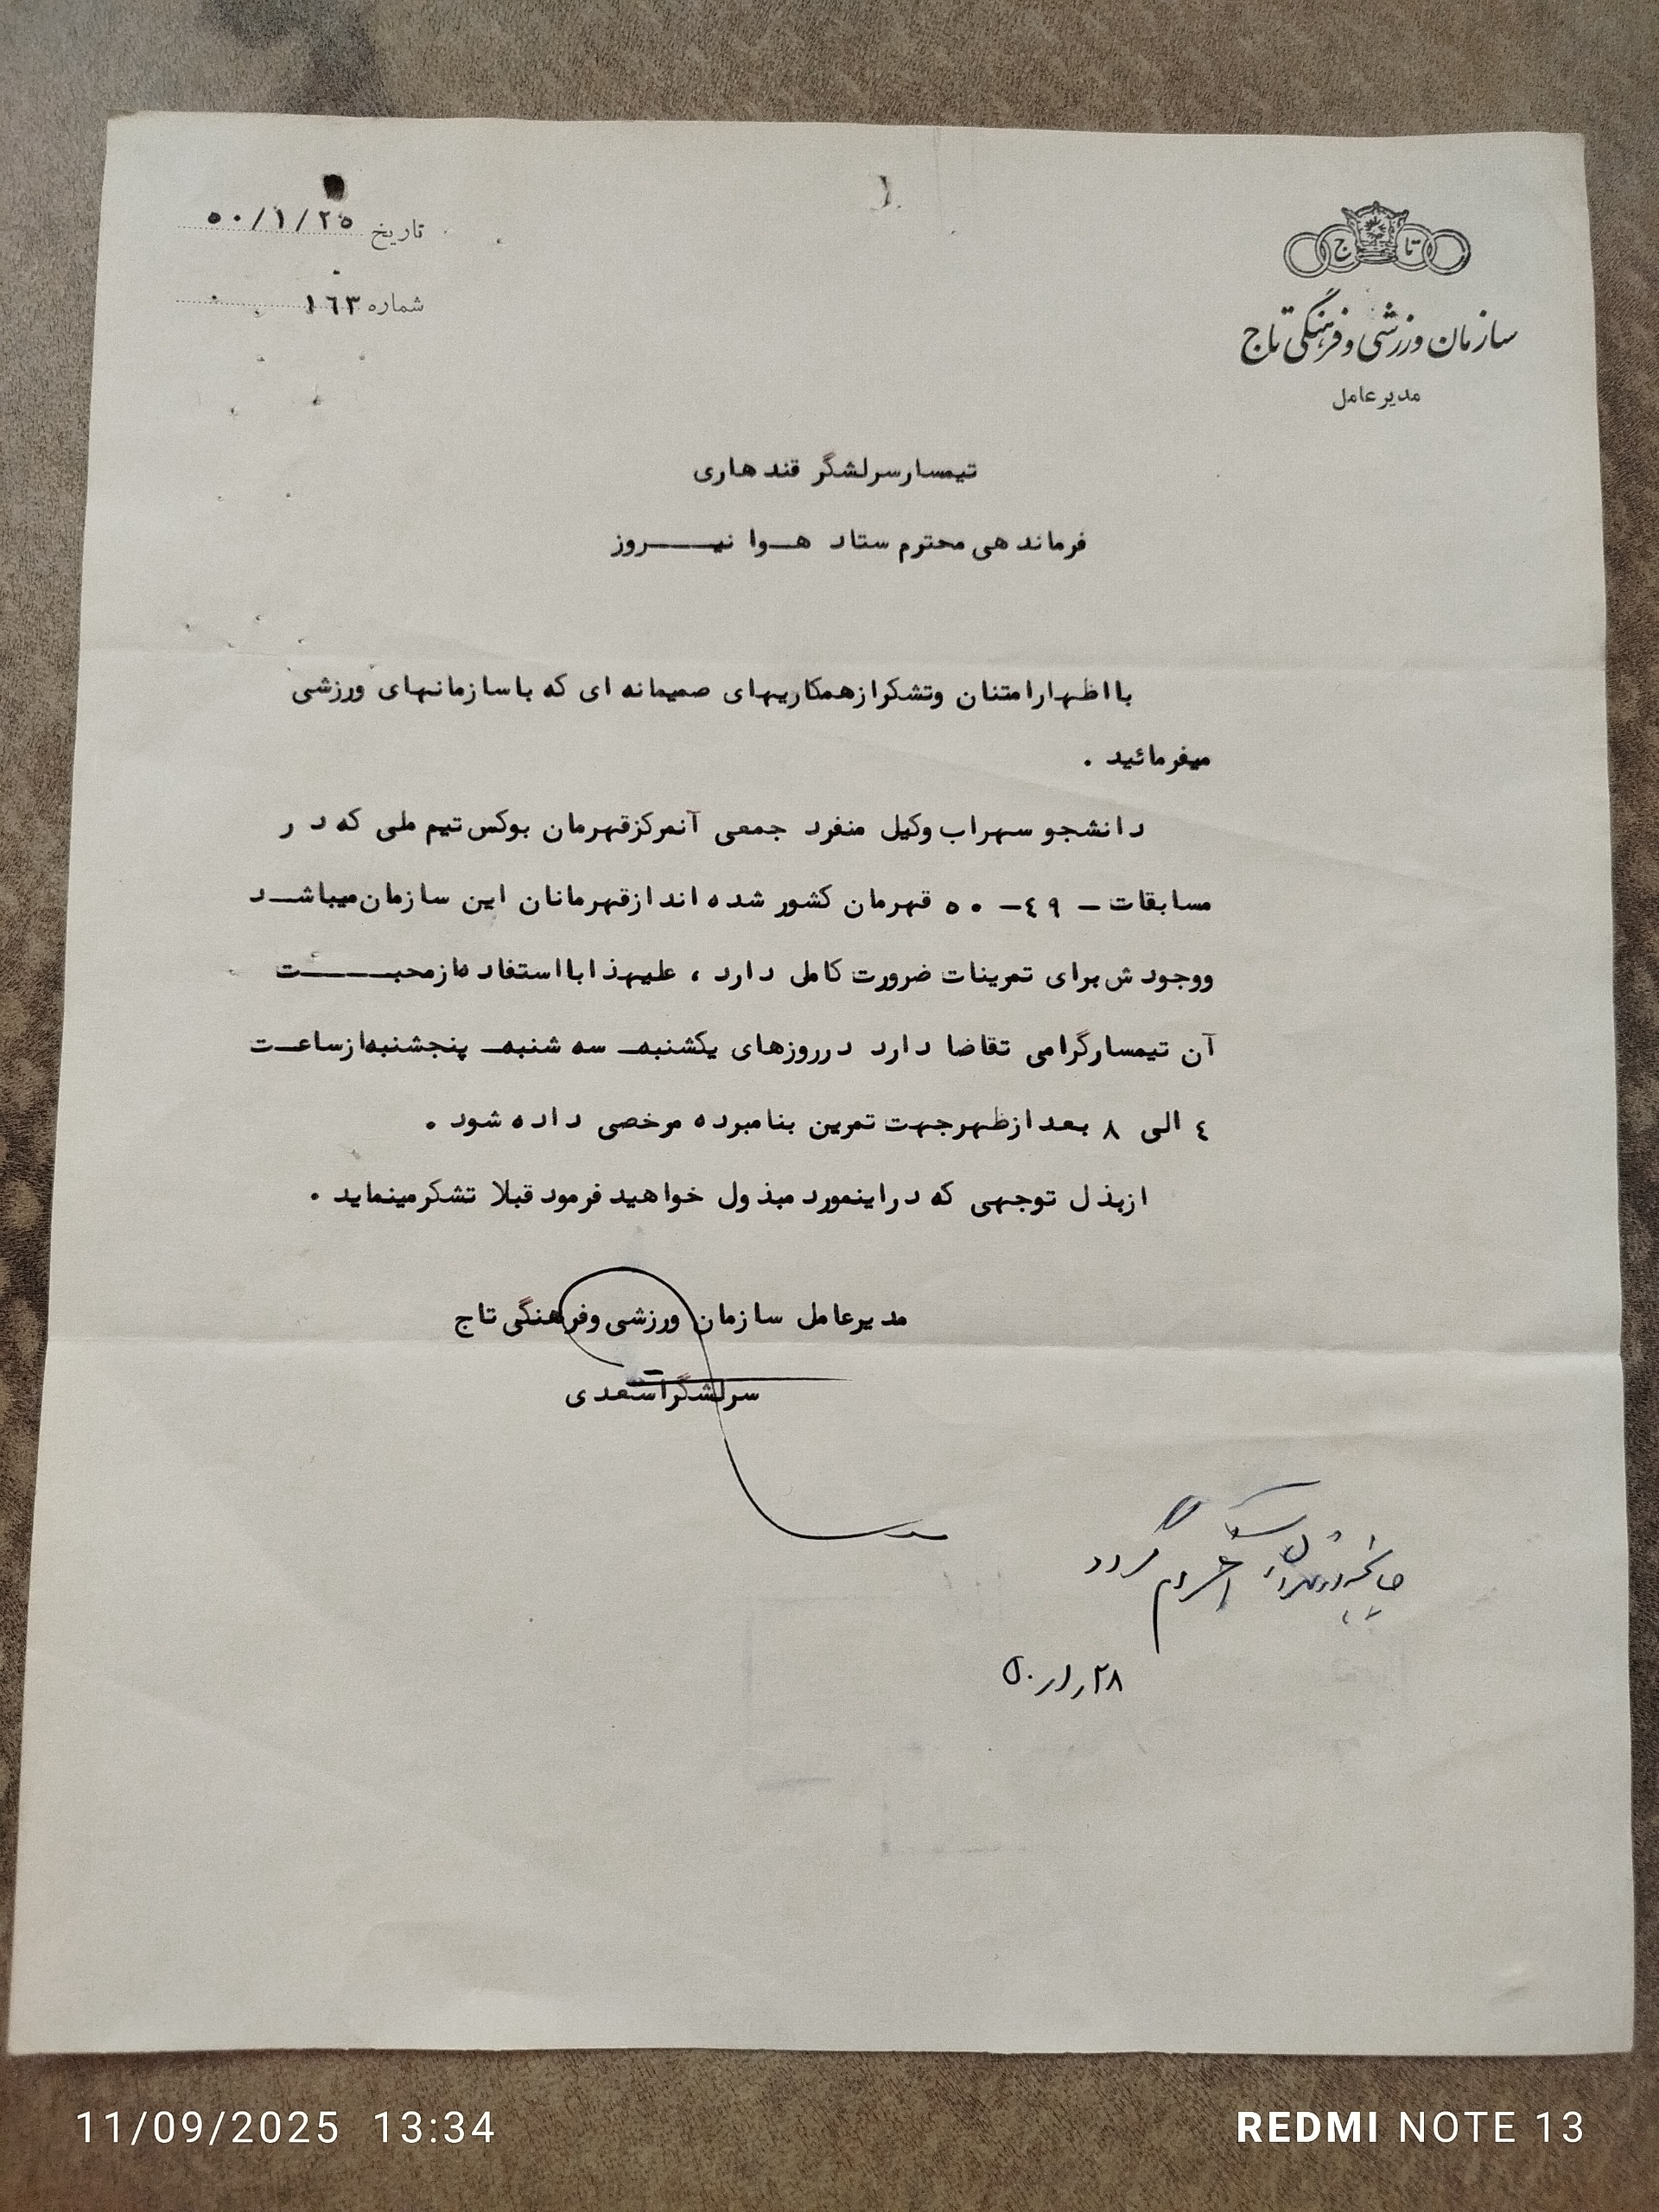 تا ج
سازمان ورزشی و فرهنگی تاج
مدیر عامل
تاریخ ۵۰/۱/۲۵
شماره ۱۶۳
تیمسار سرلشگر قندهاری
فرماندهی محترم ستاد هوا نیروز
با اظهار امتنان وتشکر از همکاریهای صمیمانه ای که با سازمانهای ورزشی
میفرمائید .
دانشجو سهراب وکیل منفرد جمعی آنمرکز قهرمان بوکس تیم ملی که در
مسابقات – ۴۹ – ۵۰ قهرمان کشور شده اند از قهرمانان این سازمان میباشد
ووجودش برای تمرینات ضرورت کامل دارد ، علیهذا با استفاده از محبت
آن تیمسار گرامی تقاضا دارد در روزهای یکشنبه – سه شنبه – پنجشنبه از ساعت
۴ الی ۸ بعد از ظهر جهت تمرین بنامبرده مرخصی داده شود .
از بذل توجهی که در اینمورد مبذول خواهید فرمود قبلا تشکر مینماید .
مدیر عامل سازمان ورزشی وفرهنگی تاج
سرلشگر اسعدی
گردد
۲۸ر۱ر۵۰
11/09/2025 13:34
REDMI NOTE 13